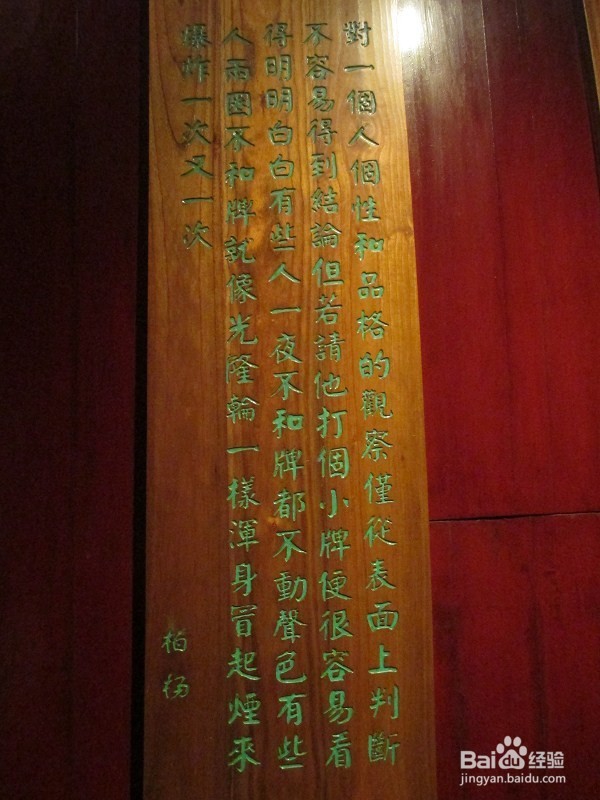 對一個人個性和品格的觀察僅從表面上判斷
不容易得到結論但若請他打個小牌便很容易看
得明明白白有些人一夜不和牌都不動聲色有些
人兩圈不和牌就像光隆輪一樣渾身冒起煙來
爆炸一次又一次
柏楊
Baidu 经验
jingyan.baidu.com